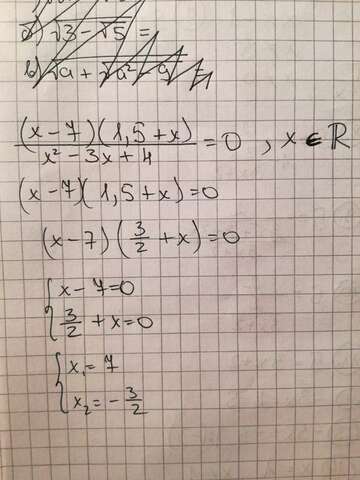 a) √3 - √5 =
b) √a + √a² - 9 =
(x - 7)(1,5 + x) / x² - 3x + 4 = 0 , x ∈ ℝ
(x - 7)(1,5 + x) = 0
(x - 7)(3/2 + x) = 0
{ x - 7 = 0
3/2 + x = 0
{ x₁ = 7
x₂ = - 3/2